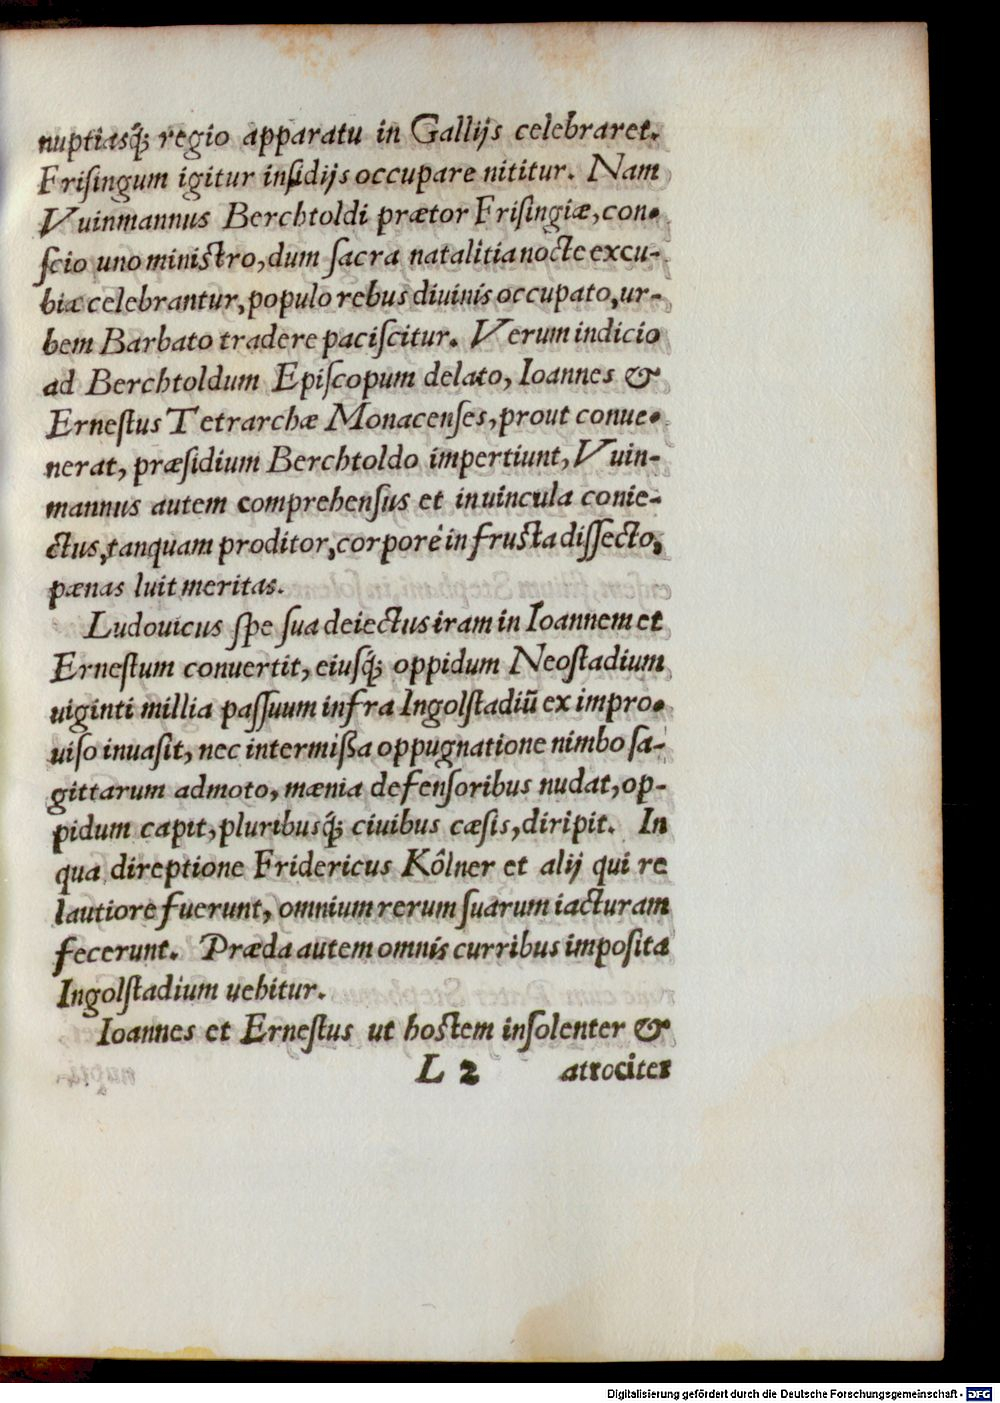 nuptiasq́; regio apparatu in Gallijs celebraret.
Friſingum igitur inſidijs occupare nititur. Nam
Vuinmannus Berchtoldi prætor Friſingiæ, con-
ſcio uno miniſtro, dum ſacra natalitia nocte excu-
biæ celebrantur, populo rebus diuinis occupato, ur-
bem Barbato tradere paciſcitur. Verum indicio
ad Berchtoldum Epiſcopum delato, Ioannes &
Erneſtus Tetrarchæ Monacenſes, prout conue-
nerat, præsidium Berchtoldo impertiunt, Vuin-
mannus autem comprehenſus et in uincula conie-
ctus, tanquam proditor, corpore in fruſta diſſecto,
pænas luit meritas.
Ludouicus ſpe ſua deiectus iram in Ioannem et
Erneſtum conuertit, eiusq́; oppidum Neoſtadium
uiginti millia paſſuum infra Ingolſtadiū ex impro-
uiſo inuaſit, nec intermißa oppugnatione nimbo ſa-
gittarum admoto, mænia defenſoribus nudat, op-
pidum capit, pluribusq́; ciuibus cæſis, diripit. In
qua direptione Fridericus Kôlner et alij qui re
lautiore fuerunt, omnium rerum ſuarum iacturam
fecerunt. Præda autem omnis curribus impoſita
Ingolſtadium uehitur.
Ioannes et Erneſtus ut hoſtem inſolenter &
L 2 atrociter
Digitalisierung gefördert durch die Deutsche Forschungsgemeinschaft - DFG